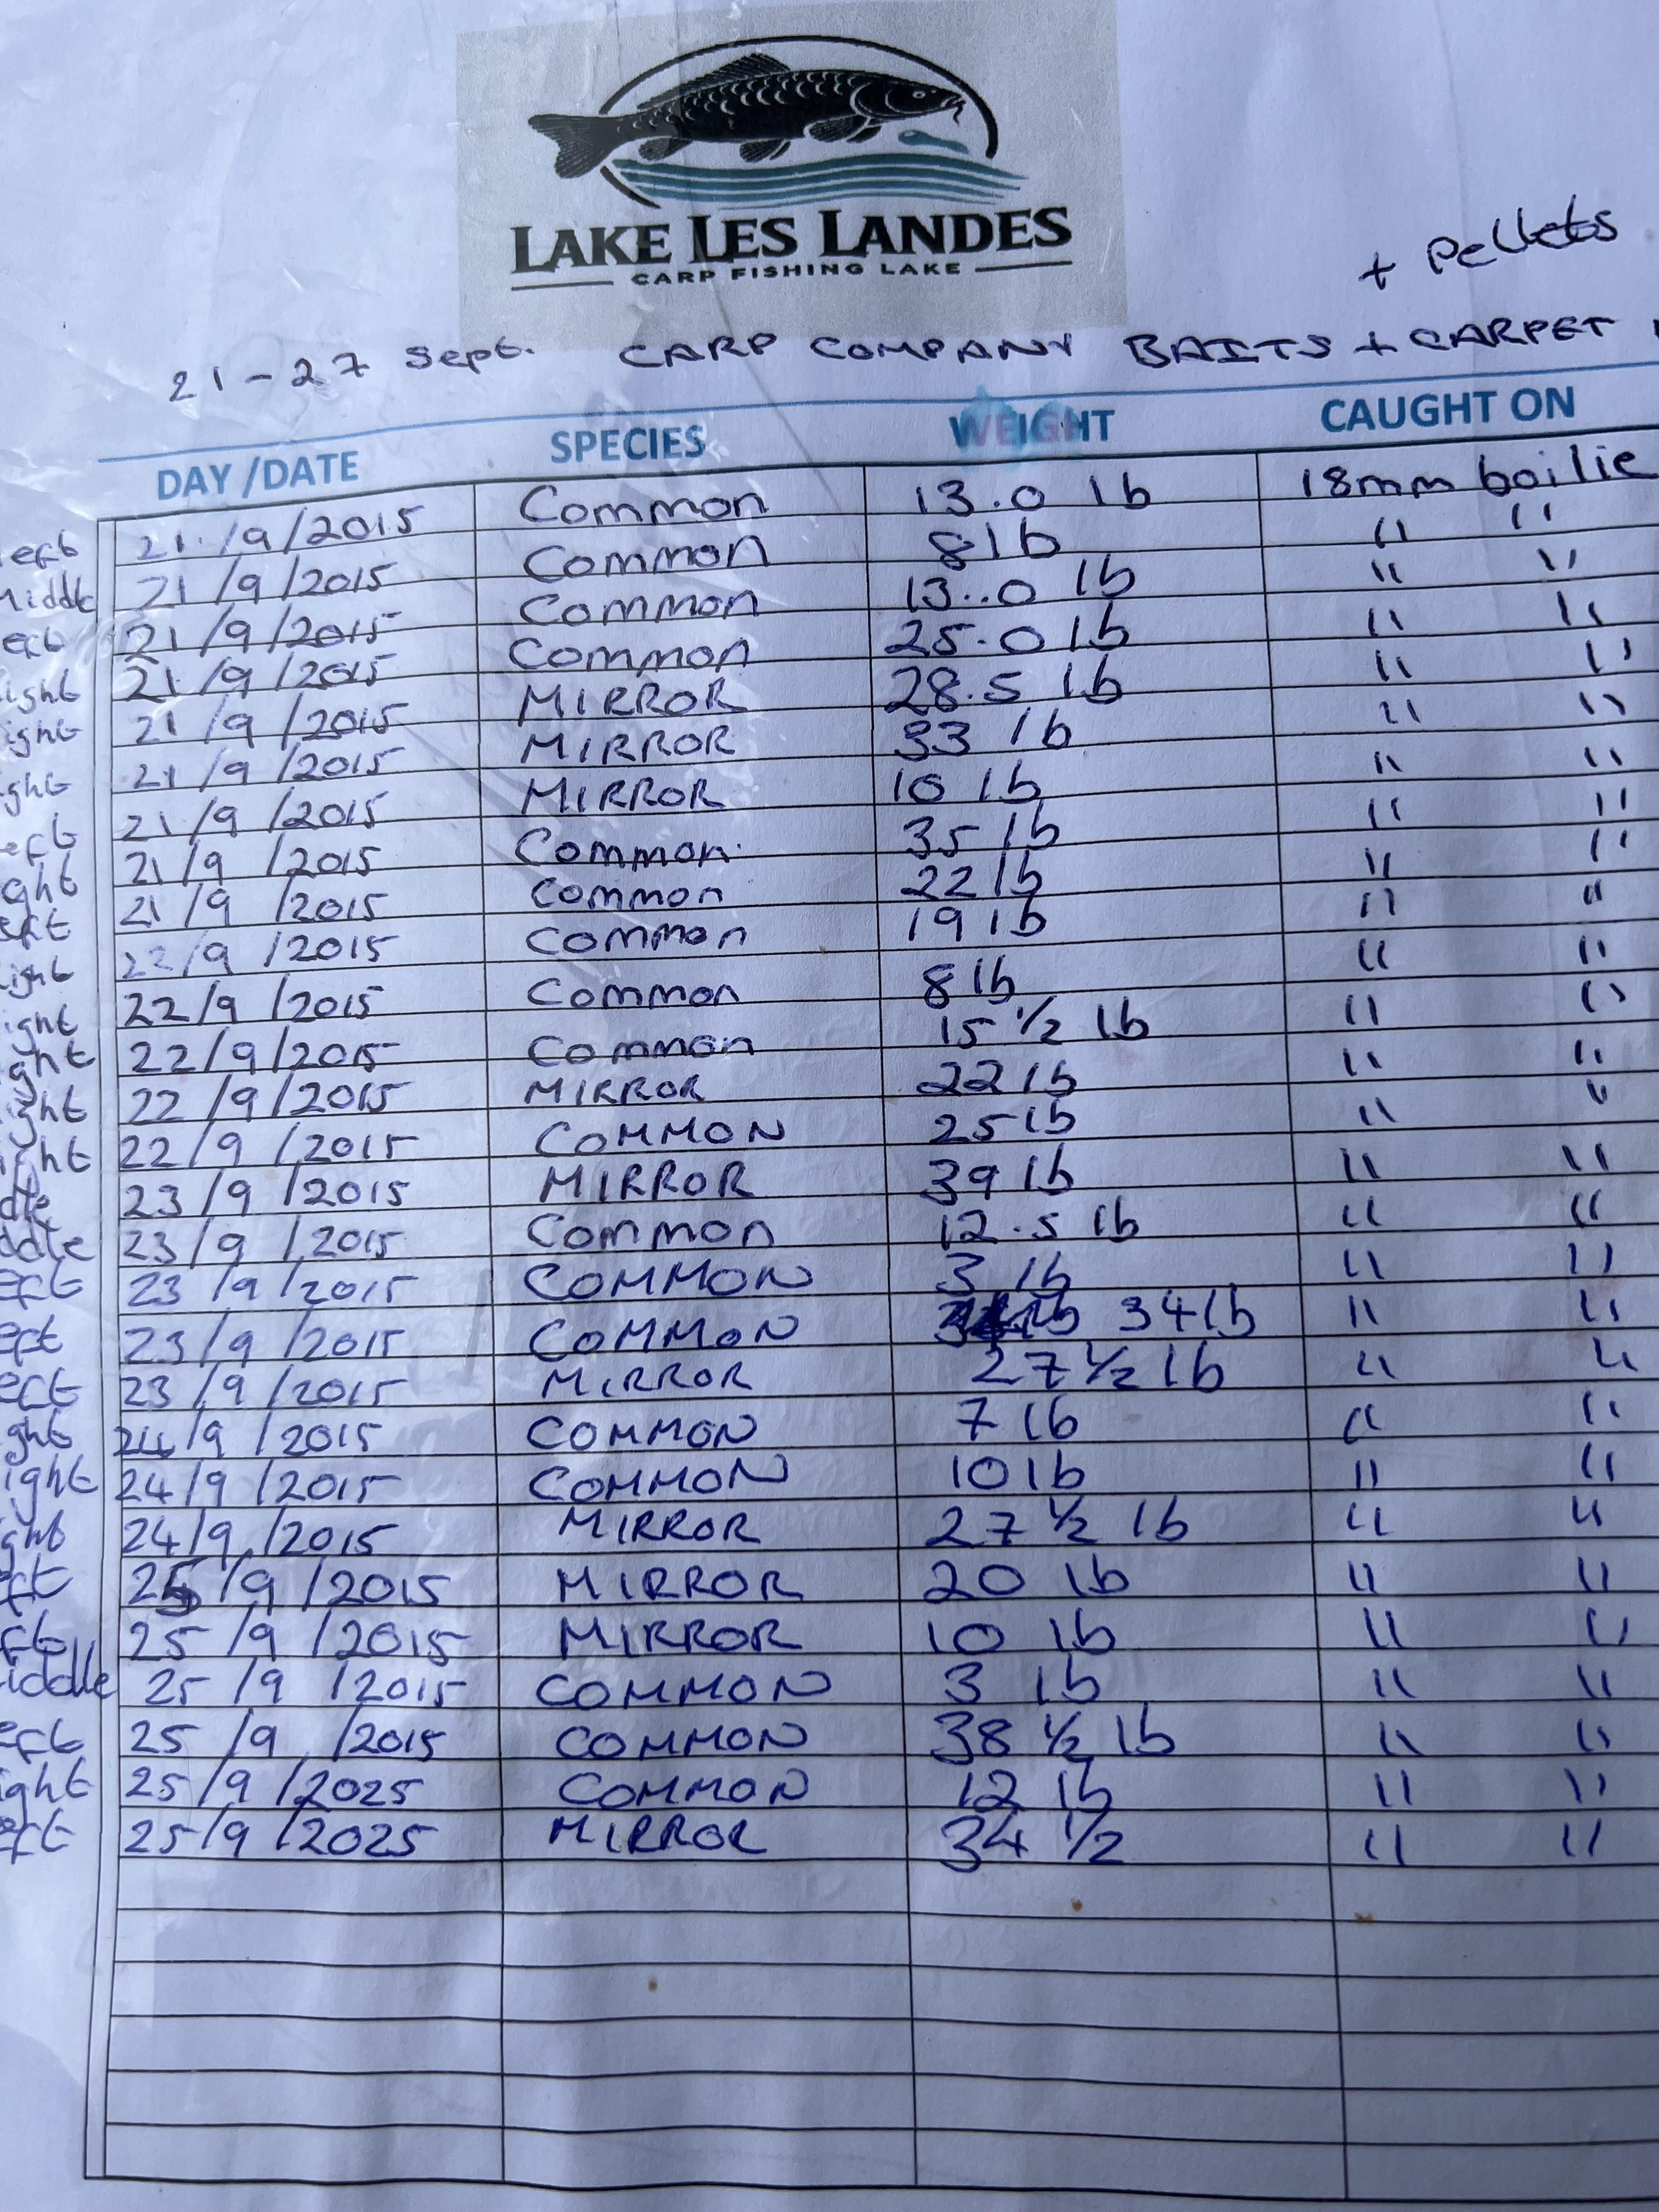 LAKE LES LANDES
CARP FISHING LAKE
+ Pellets
21-27 Sept. CARP COMPANY BAITS + CARPET
DAY/DATE SPECIES WEIGHT CAUGHT ON
eft 21./9/2015 Common 13.0 lb 18mm boilie
iddle 21/9/2015 Common 8lb " "
eft 21/9/2015 Common 13..0 lb " "
ight 21/9/2015 Common 25.0 lb " "
ight 21/9/2015 MIRROR 28.5 lb " "
ght 21/9/2015 MIRROR 33 lb " "
eft 21/9/2015 MIRROR 10 lb " "
ght 21/9/2015 Common. 35 lb " "
eft 21/9/2015 Common 22 lb " "
ight 22/9/2015 Common 19 lb " "
ight 22/9/2015 Common 8 lb " "
ght 22/9/2015 Common 15 ½ lb " "
ght 22/9/2015 MIRROR 22 lb " "
ght 22/9/2015 COMMON 25 lb " "
dle 23/9/2015 MIRROR 39 lb " "
ddle 23/9/2015 Common 12.5 lb " "
eft 23/9/2015 COMMON 3 lb " "
eft 23/9/2015 COMMON 34 lb " "
eft 23/9/2015 MIRROR 27 ½ lb " "
ght 24/9/2015 COMMON 7 lb " "
ight 24/9/2015 COMMON 10 lb " "
ght 24/9/2015 MIRROR 27 ½ lb " "
ft 25/9/2015 MIRROR 20 lb " "
ft 25/9/2015 MIRROR 10 lb " "
iddle 25/9/2015 COMMON 3 lb " "
eft 25/9/2015 COMMON 38 ½ lb " "
ight 25/9/2025 COMMON 12 lb " "
eft 25/9/2025 MIRROR 34 ½ " "